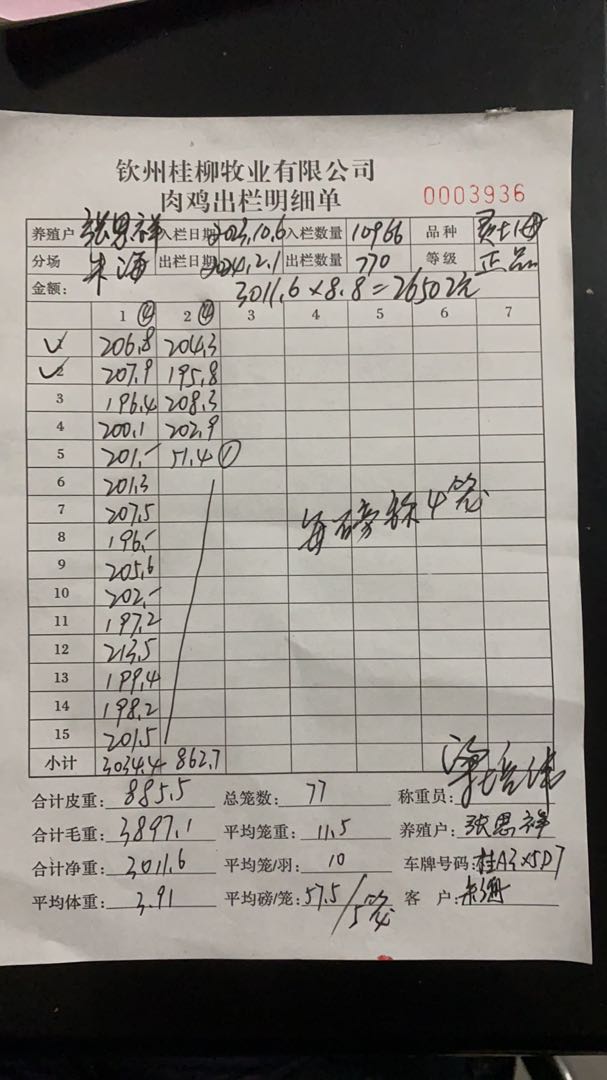 钦州桂柳牧业有限公司
肉鸡出栏明细单
0003936
养殖户 张思祥 入栏日期 2023.10.6 入栏数量 10966 品种
分场 朱海 出栏日期 2024.2.1 出栏数量 770 等级 正品
金额: 3011.6×8.8=26502元
1 ④ 2 ④ 3 4 5 6 7
1 206.8 204.3
2 207.9 195.8
3 196.4 208.3
4 200.1 202.9
5 201.- 51.4 ①
6 201.3
7 207.5
每磅称4笼
8 196.-
9 205.6
10 202.-
11 197.2
12 213.5
13 199.4
14 198.2
15 201.5
小计 3034.4 862.7
合计皮重: 885.5 总笼数: 77 称重员:
合计毛重: 3897.1 平均笼重: 11.5 养殖户: 张思祥
合计净重: 3011.6 平均笼/羽: 10 车牌号码: 桂A3×5D7
平均体重: 3.91 平均磅/笼: 57.5/5笼 客户: 朱海